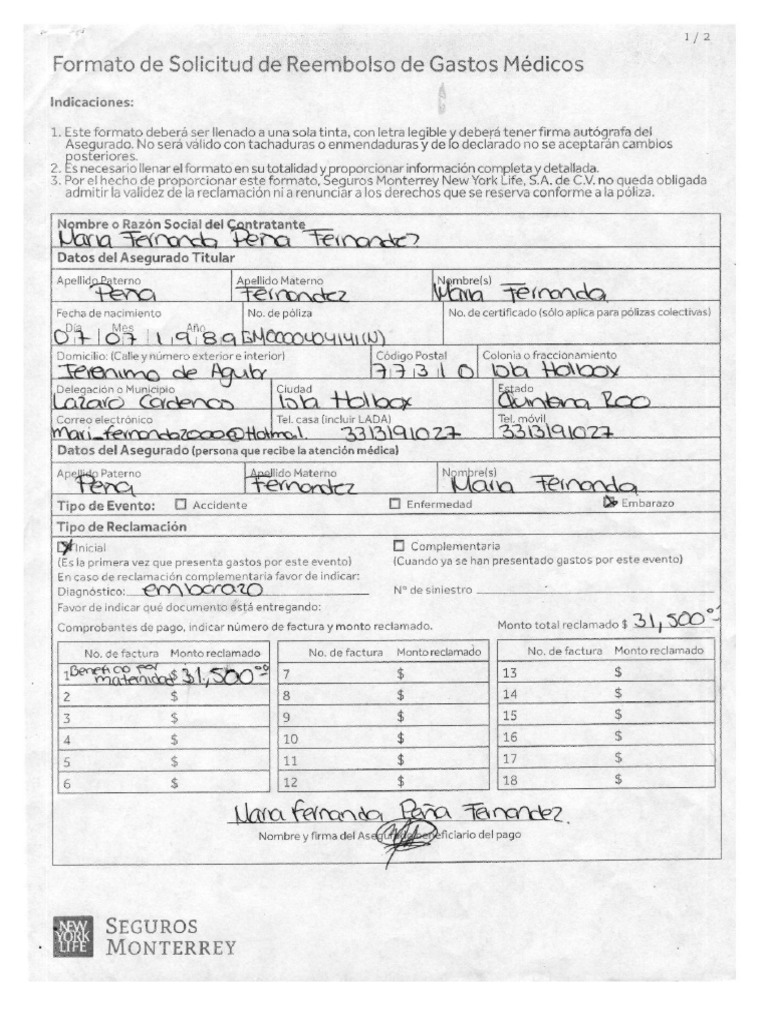 1 / 2
Formato de Solicitud de Reembolso de Gastos Médicos
Indicaciones:
1. Este formato deberá ser llenado a una sola tinta, con letra legible y deberá tener firma autógrafa del
Asegurado. No será válido con tachaduras o enmendaduras y de lo declarado no se aceptarán cambios
posteriores.
2. Es necesario llenar el formato en su totalidad y proporcionar información completa y detallada.
3. Por el hecho de proporcionar este formato, Seguros Monterrey New York Life, S.A. de C.V. no queda obligada
admitir la validez de la reclamación ni a renunciar a los derechos que se reserva conforme a la póliza.
Nombre o Razón Social del Contratante
Maria Fernanda Peña Fernandez
Datos del Asegurado Titular
Apellido Paterno Apellido Materno Nombre(s)
Peña Fernandez Maria Fernanda
Fecha de nacimiento No. de póliza No. de certificado (sólo aplica para pólizas colectivas)
Día Mes Año
07 07 1989 GM0000404141(N)
Domicilio: (Calle y número exterior e interior) Código Postal Colonia o fraccionamiento
Jeronimo de Aguilar 77310 Isla Holbox
Delegación o Municipio Ciudad Estado
Lazaro Cardenas Isla Holbox Quintana Roo
Correo electrónico Tel. casa (incluir LADA) Tel. móvil
mari_fernanda2000@Hotmail. 3313191027 3313191027
Datos del Asegurado (persona que recibe la atención médica)
Apellido Paterno Apellido Materno Nombre(s)
Peña Fernandez Maria Fernanda
Tipo de Evento: Accidente Enfermedad Embarazo
Tipo de Reclamación
Inicial Complementaria
(Es la primera vez que presenta gastos por este evento) (Cuando ya se han presentado gastos por este evento)
En caso de reclamación complementaria favor de indicar:
Diagnóstico: embarazo N° de siniestro
Favor de indicar qué documento está entregando:
Comprobantes de pago, indicar número de factura y monto reclamado. Monto total reclamado $ 31,500.00
No. de factura Monto reclamado No. de factura Monto reclamado No. de factura Monto reclamado
1 Beneficio por maternidad $ 31,500.00 7 $ 13 $
2 $ 8 $ 14 $
3 $ 9 $ 15 $
4 $ 10 $ 16 $
5 $ 11 $ 17 $
6 $ 12 $ 18 $
Maria Fernanda Peña Fernandez.
Nombre y firma del Asegurado beneficiario del pago
NEW YORK LIFE
SEGUROS
MONTERREY